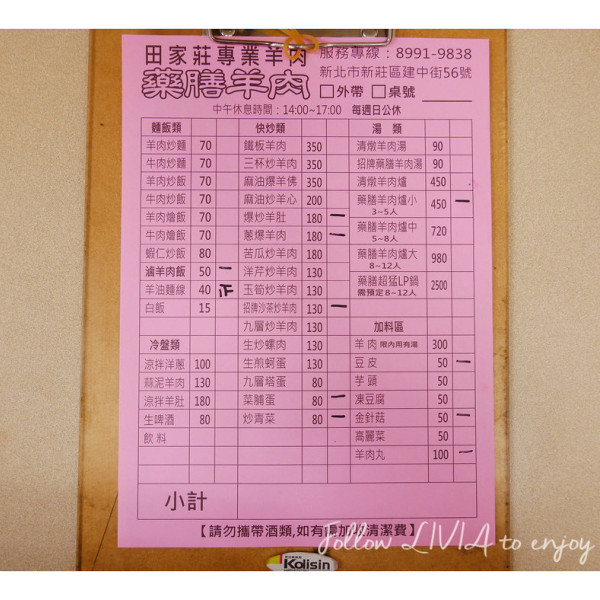 田家莊專業羊肉 服務專線：8991-9838
藥膳羊肉 新北市新莊區建中街56號
□外帶 □桌號
中午休息時間：14:00~17:00 每週日公休
麵飯類 快炒類 湯 類
羊肉炒麵 70 鐵板羊肉 350 清燉羊肉湯 90
牛肉炒麵 70 三杯炒羊肉 350 招牌藥膳羊肉湯 90
羊肉炒飯 70 麻油爆羊佛 350 清燉羊肉爐 450
牛肉炒飯 70 麻油炒羊心 200 藥膳羊肉爐小 3~5人 450 一
羊肉燴飯 70 爆炒羊肚 180 一 藥膳羊肉爐中 5~8人 720
牛肉燴飯 70 蔥爆羊肉 180 一
蝦仁炒飯 80 苦瓜炒羊肉 130 藥膳羊肉爐大 8~12人 980
滷羊肉飯 50 一 洋芹炒羊肉 130 藥膳超猛LP鍋 需預定8~12人 2500
羊油麵線 40 正 玉筍炒羊肉 130
白飯 15 招牌沙茶炒羊肉 130 一
九層炒羊肉 130 加料區
冷盤類 生炒螺肉 130 羊肉 限內用有湯 300
涼拌洋蔥 100 生煎蚵蛋 130 豆皮 50 一
蒜泥羊肉 130 九層塔蛋 80 芋頭 50
涼拌羊肚 180 菜脯蛋 80 一 凍豆腐 50
生啤酒 80 炒青菜 80 一 金針菇 50 一
飲料 高麗菜 50
羊肉丸 100 一
小計
【請勿攜帶酒類,如有需加收清潔費】
Follow LIVIA to enjoy
Kolisin